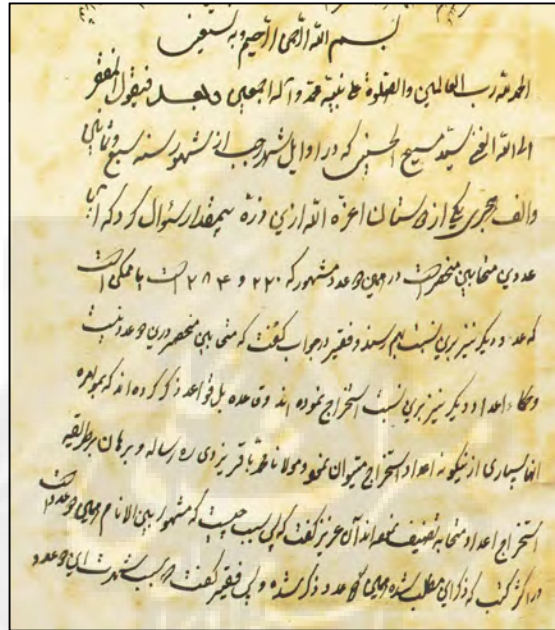 بسم الله الرحمن الرحیم وبه نستعین
الحمد لله رب العالمین والصلوة علی نبیه محمد وآله اجمعین وبعد فیقول المفتقر
الی الله الغنی سید مسیح الحسینی که در اوایل شهر رجب از شهور سنه سبع وثمانین
والف هجری یکی از دوستان اعزه الله ازین ذرّه بیمقدار سئوال کرد که
عددین متحابین منحصر است در همین دو عدد مشهور که ۲۲۰ و ۲۸۴ است یا ممکن است
که عدد دیگر نیز برین نسبت بهم رسند وفقیر در جواب گفت که متحابین منحصر درین دو عدد نیست
وحکما اعداد دیگر نیز برین نسبت استخراج نموده اند وقاعده بل قواعد ذکر کرده اند که بموجب
انها بسیاری از نیکونه اعداد استخراج میتوان نمود ومولانا محمد باقر یزدی ره رساله وبرهان بر طریقه
استخراج اعداد متحابه تصنیف نموده اند آن عزیز گفت که پس سبب چیست که مشهور بین الانام همین دو عدد است
در اکثر کتب که ذکر این مطلب شده همین دو عدد ذکر شده فقیر گفت سبب شهرت این دو عدد